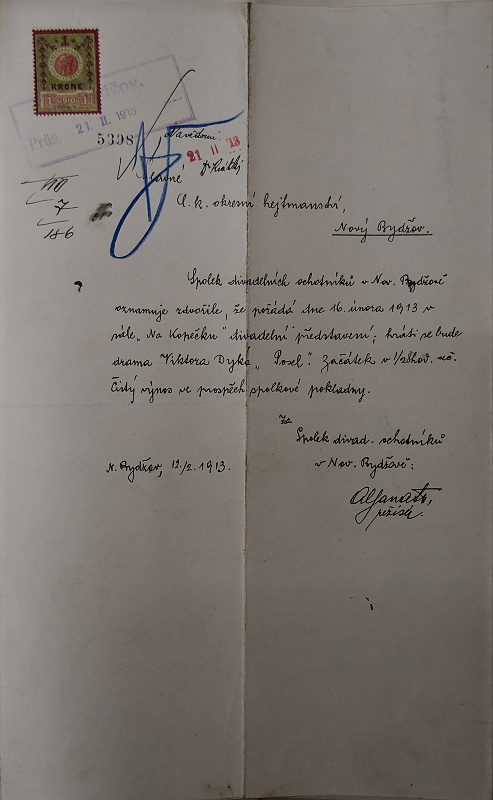 1
KRONE
21. II. 1913
5398
21 II '13
slavné
C. k. okresní hejtmanství,
Nový Bydžov.
VIII
7
186
Spolek divadelních ochotníků v Nov. Bydžově
oznamuje zdvořile, že pořádá dne 16. února 1913 v
sále „Na Kopečku" divadelní představení; hráti se bude
drama Viktora Dyka „Posel". Začátek v 1/28 hod. več.
Čistý výnos ve prospěch spolkové pokladny.
Za
Spolek divad. ochotníků
v Nov. Bydžově:
N. Bydžov, 12./2. 1913.
režisér.